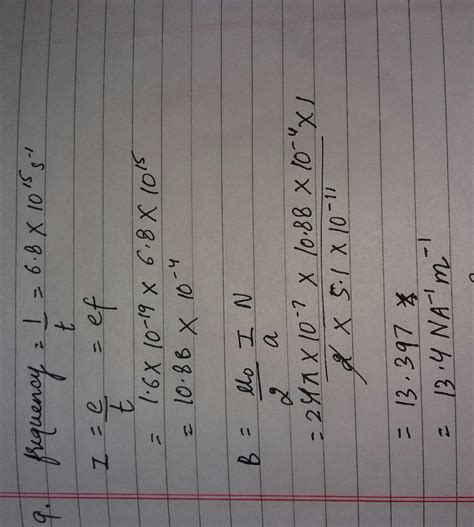 9. frequency = 1/t = 6.8 × 10¹⁵ s⁻¹
I = e/t = ef
= 1.6 × 10⁻¹⁹ × 6.8 × 10¹⁵
= 10.88 × 10⁻⁴
B = μ₀/2 I/a N
= 24π × 10⁻⁷ × 10.88 × 10⁻⁴ × 1
2 × 5.1 × 10⁻¹¹
= 13.397
= 13.4 NA⁻¹m⁻¹